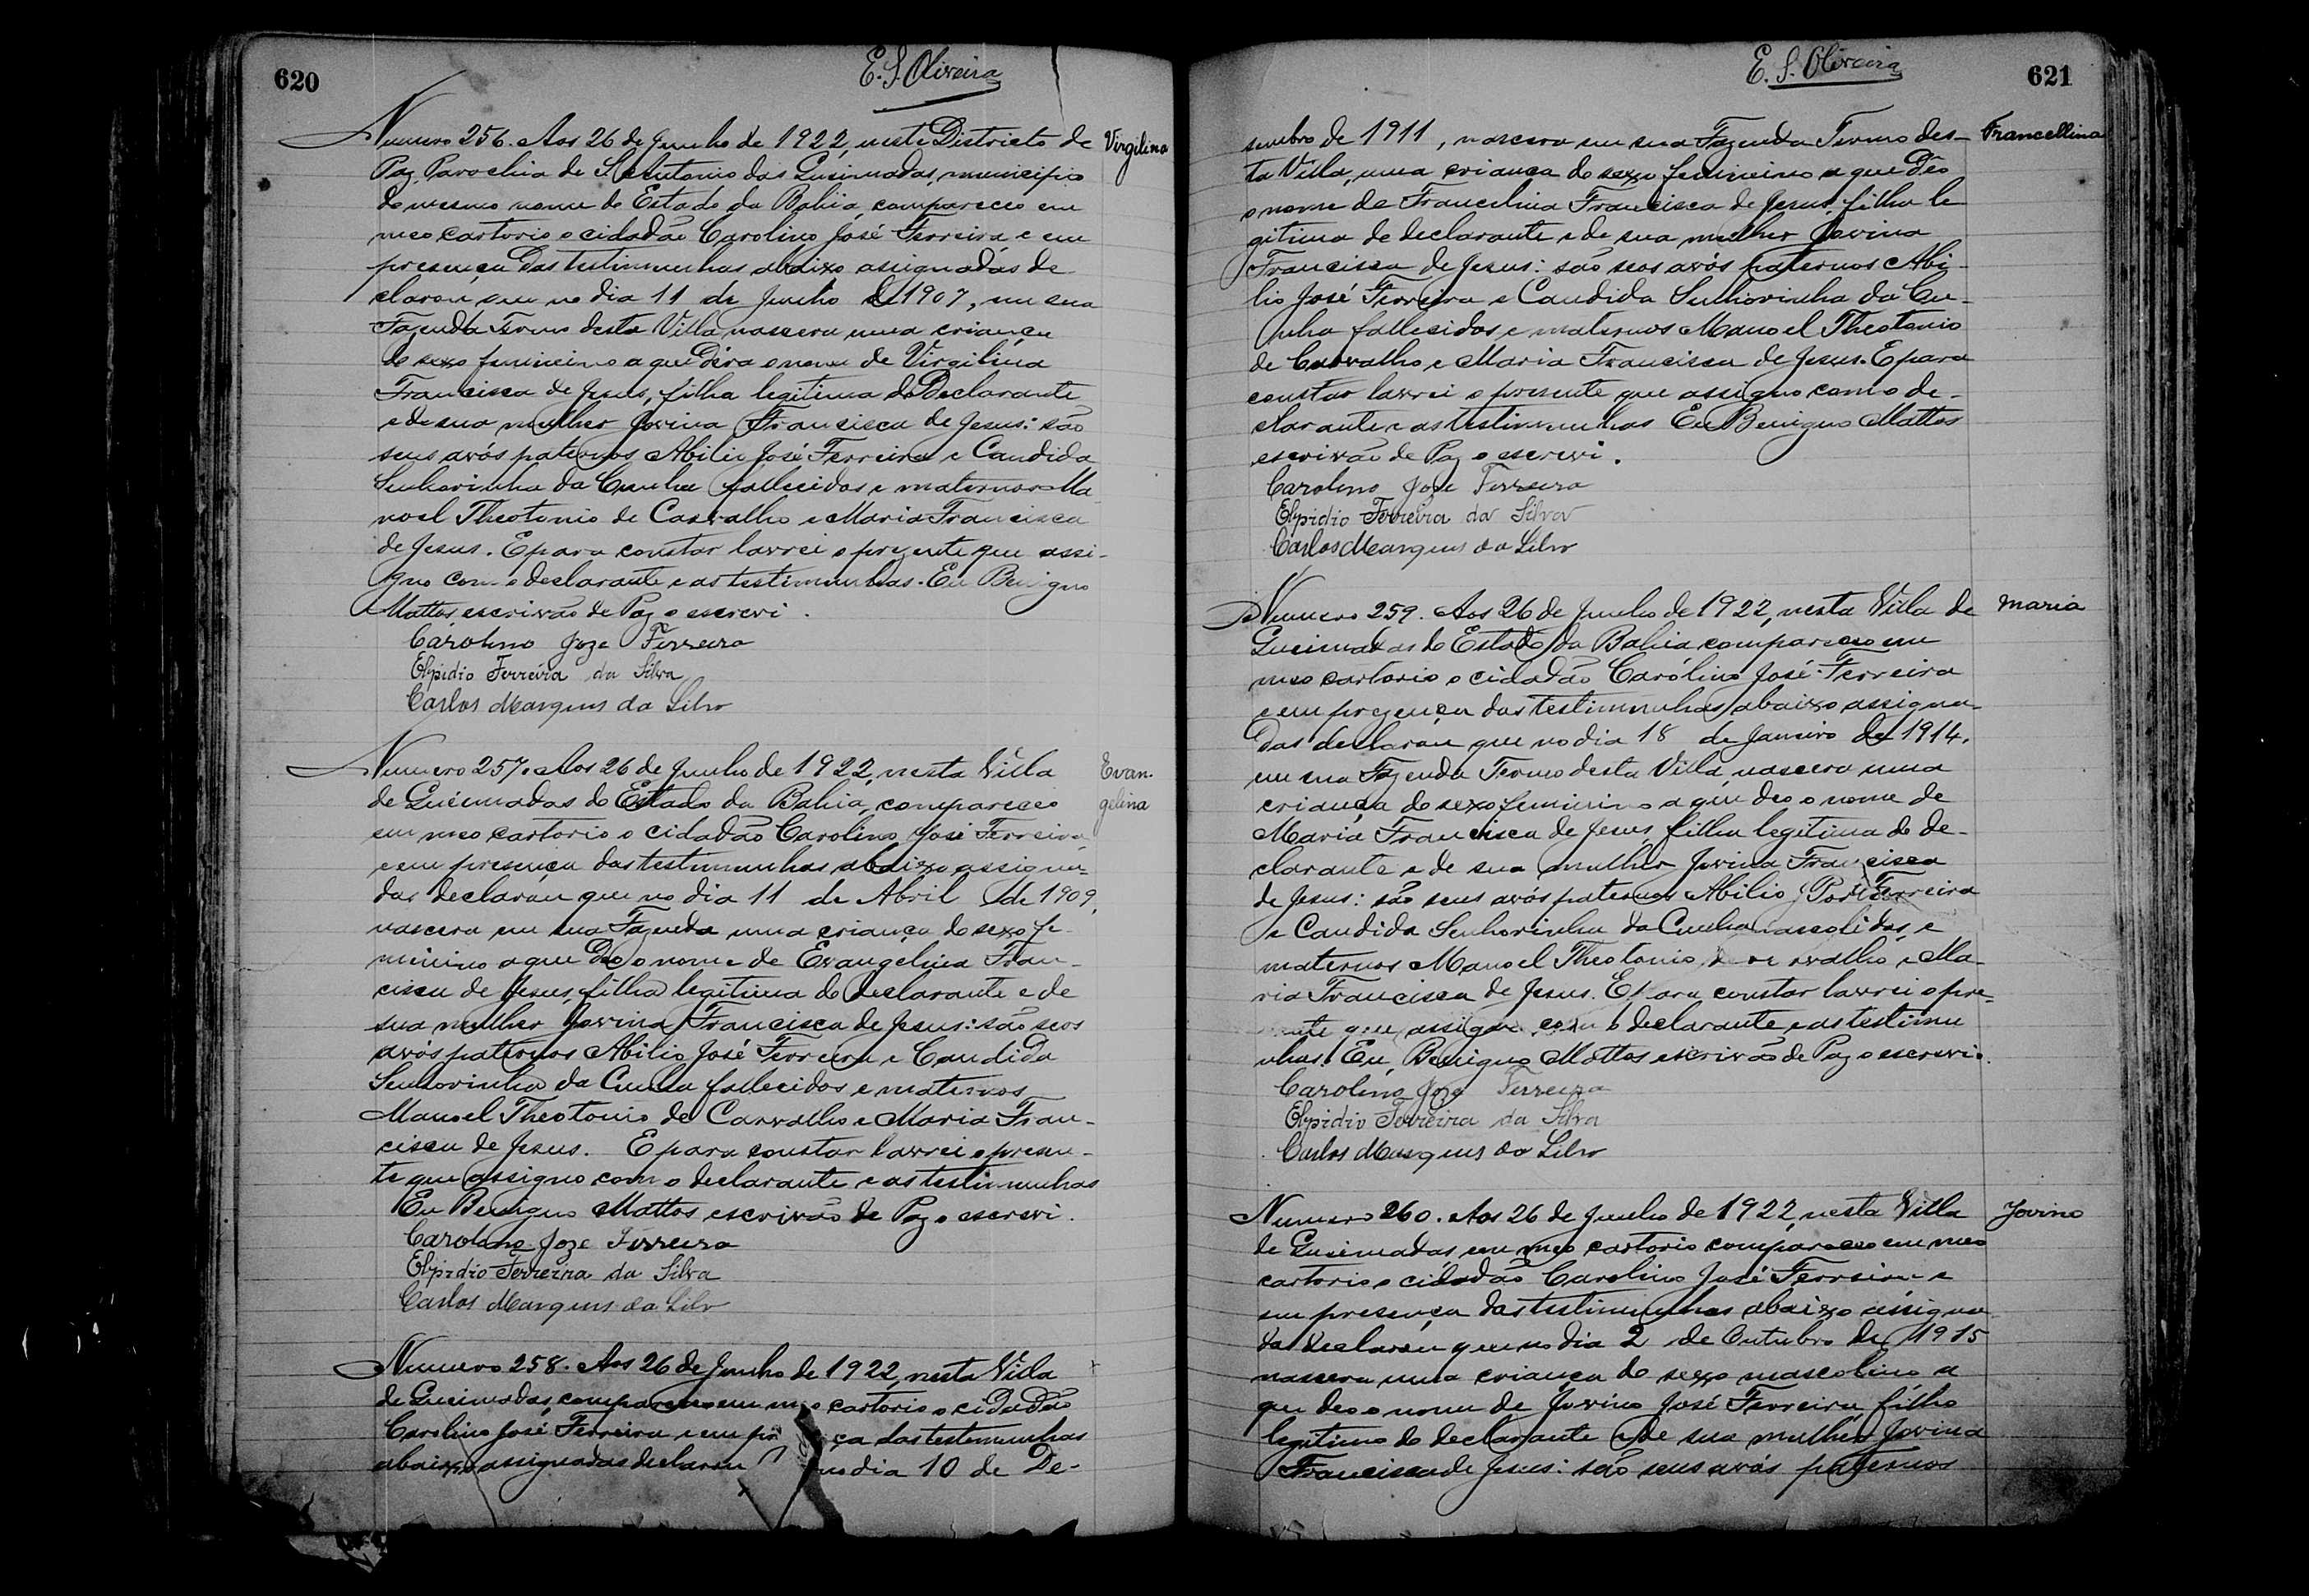 620
E. S. Oliveira
Numero 256. Aos 26 de Junho de 1922, neste Districto de
Virgilina
Paz, Parochia de S. Antonio das Queimadas, municipio
do mesmo nome do Estado da Bahia, compareceo em
meo cartorio o cidadão Carolino José Ferreira e em
presença das testimunhas abaixo assignadas de
clarou, que no dia 11 de Junho de 1907, em sua
Fazenda Termo desta Villa nascera uma criança
do sexo feminino a que dera o nome de Virgilina
Francisca de Jesus, filha legitima do Declarante
e de sua mulher Jovina Francisca de Jesus: são
seus avós paternos Abilio José Ferreira e Candida
Senhorinha da Cunha fallecidos, e maternos Ma
noel Theotonio de Carvalho e Maria Francisca
de Jesus. E para constar lavrei o prezente que assi-
gno com o declarante e as testimunhas. Eu Benigno
Mattos, escrivão de Paz o escrevi.
Carolino Joze Ferreira
Elpidio Ferreira da Silva
Carlos Marques da Silva
Numero 257. Aos 26 de Junho de 1922, nesta Villa
Evan-
gelina
de Queimadas do Estado da Bahia, compareceo
em meo cartorio o cidadão Carolino José Ferreira
e em presença das testimunhas abaixo assigna-
das declarou que no dia 11 de Abril de 1909,
nascera em sua Fazenda uma criança do sexo fe-
minino a que Deo o nome de Evangelina Fran-
cisca de Jesus, filha legitima do declarante e de
sua mulher Jovina Francisca de Jesus: são seos
avós paternos Abilio José Ferreira e Candida
Senhorinha da Cunha fallecidos e maternos
Manoel Theotonio de Carvalho e Maria Fran-
cisca de Jesus. E para constar lavrei o presen-
te que assigno com o declarante e as testimunhas
Eu Benigno Mattos escrivão de Paz o escrevi.
Carolino Joze Ferreira
Elpidio Ferreira da Silva
Carlos Marques da Silv
Numero 258. Aos 26 de Junho de 1922, nesta Villa
de Queimadas, compareceo em meo cartorio o cidadão
Carolino José Ferreira e em pr ença das testemunhas
abaixo assignadas declarou no dia 10 de De-
E. S. Oliveira
621
sembro de 1911, nascera em sua Fazenda Termo des-
Francellina
ta Villa, uma criança do sexo feminino a que Deo
o nome de Francelina Francisca de Jesus, filha le
gitima do declarante e de sua mulher Jovina
Francisca de Jesus: são seos avós paternos Abi-
lio José Ferreira e Candida Senhorinha da Cu-
nha fallecidos, e maternos Manoel Theotonio
de Carvalho e Maria Francisca de Jesus. E para
constar lavrei o presente que assigno com o de-
clarante e as testimunhas Eu Benigno Mattos
escrivão de Paz o escrevi.
Carolino Joze Ferreira
Elpidio Ferreira da Silva
Carlos Marques da Silv
Numero 259. Aos 26 de Junho de 1922, nesta Villa de
Maria
Queimadas do Estado da Bahia compareceo em
meo cartorio o cidadão Carolino José Ferreira
e em prezença das testimunhas abaixo assigna
das declarou que no dia 18 de Janeiro de 1914,
em sua Fazenda Termo desta Villa, nascera uma
criança do sexo feminino a que deo o nome de
Maria Francisca de Jesus, filha legitima do de-
clarante e de sua mulher Jovina Francisca
de Jesus: são seus avós paternos Abilio Ferreira
e Candida Senhorinha da Cunha e
maternos Manoel Theotonio e Ma-
ria Francisca de Jesus. E para constar lavrei o pre-
ente que assigno com o declarante e as testimu
nhas. Eu, Benigno Mattos escrivão de Paz o escrevi.
Carolino Joze Ferreira
Elpidio Ferreira da Silva
Carlos Marques da Silv
Numero 260. Aos 26 de Junho de 1922, nesta Villa
Jovino
de Queimadas, em meo cartorio compareceo em meo
cartorio o cidadão Carolino José Ferreira e
em presença das testimunhas abaixo assigna
das declarou que no dia 2 de Outubro de 1915
nascera uma criança do sexo mascolino a
que deo o nome de Jovino José Ferreira, filho
legitimo do declarante e de sua mulher Jovina
Francisca de Jesus: são seus avós paternos